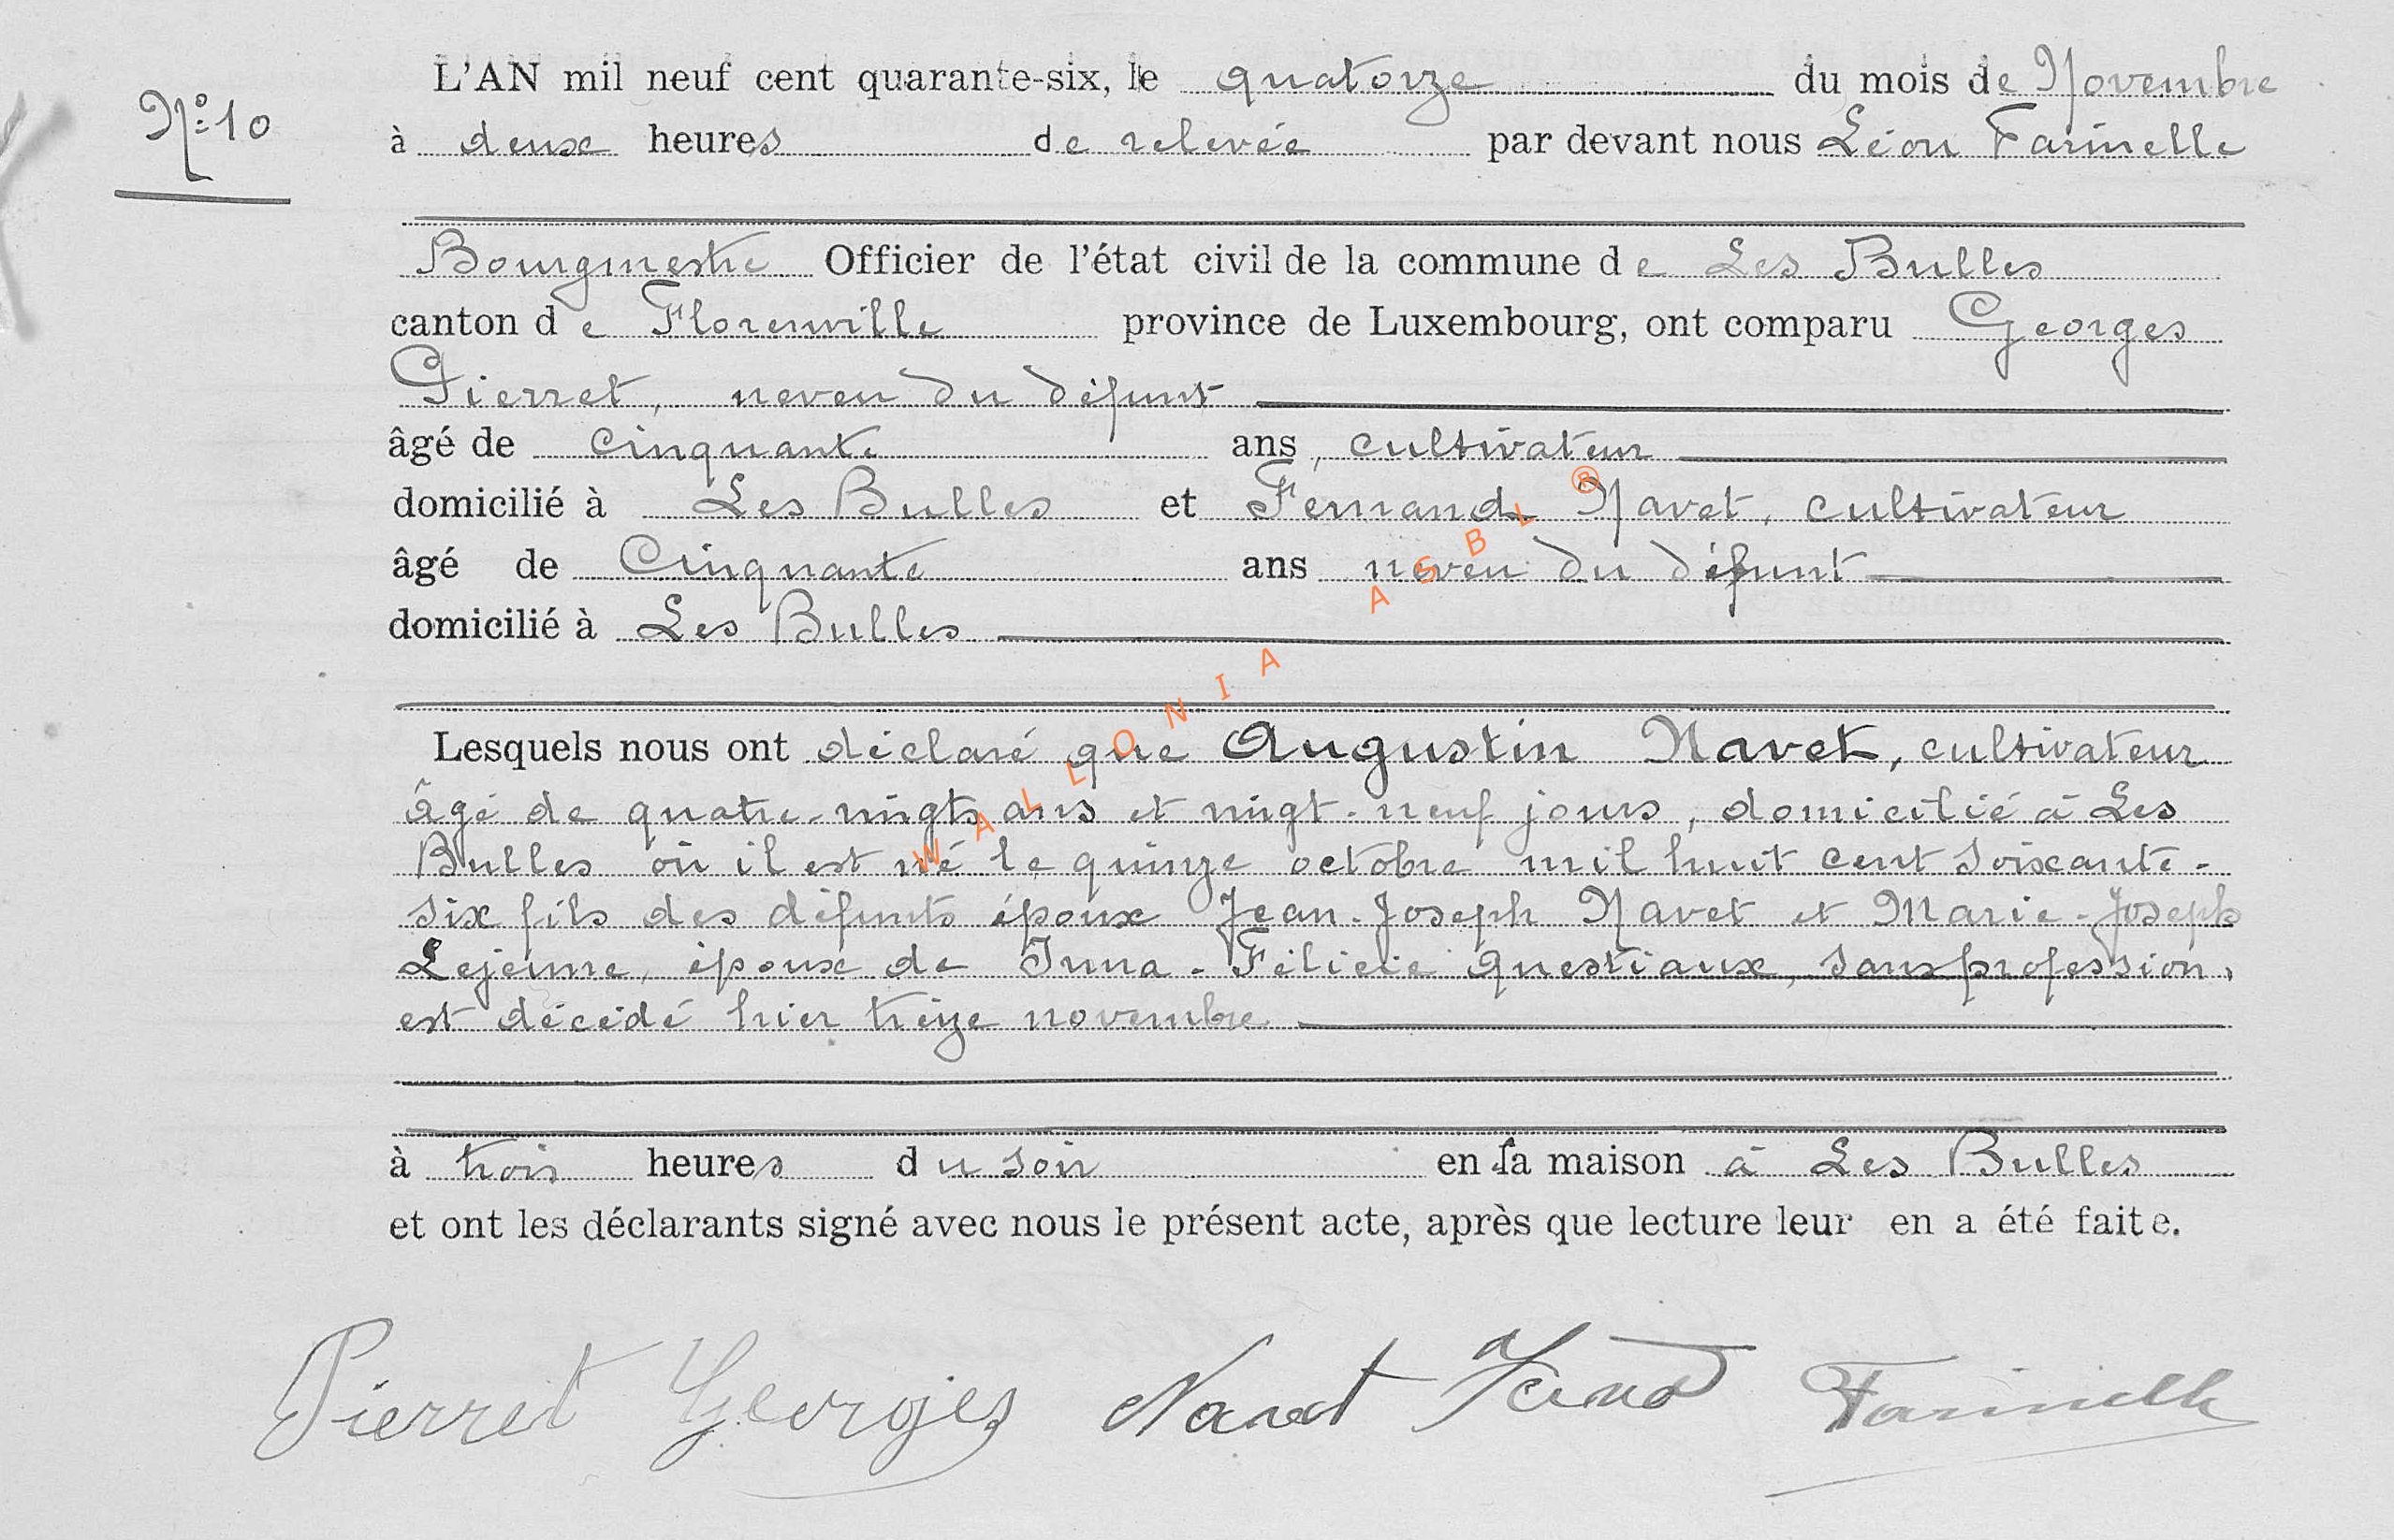 N° 10
L'AN mil neuf cent quarante-six, le quatorze du mois de Novembre
à deux heures de relevée par devant nous Léon Farinelle
Bourgmestre Officier de l'état civil de la commune de Les Bulles
canton de Florenville province de Luxembourg, ont comparu Georges
Pierret, neveu du défunt
âgé de cinquante ans, cultivateur
domicilié à Les Bulles et Fernand Navet, cultivateur
âgé de Cinquante ans neveu du défunt
domicilié à Les Bulles
Lesquels nous ont déclaré que Augustin Navet, cultivateur
âgé de quatre-vingts ans et vingt-neuf jours, domicilié à Les
Bulles où il est né le quinze octobre mil huit cent soixante-
six fils des défunts époux Jean-Joseph Navet et Marie-Joseph
Lejeune, époux de Irma-Félicie Questiaux, sans profession,
est décédé hier treize novembre
à trois heures du soir en sa maison à Les Bulles
et ont les déclarants signé avec nous le présent acte, après que lecture leur en a été faite.
Pierret Georges Navet Fernd Farinelle
WALLONIA ASBL ®